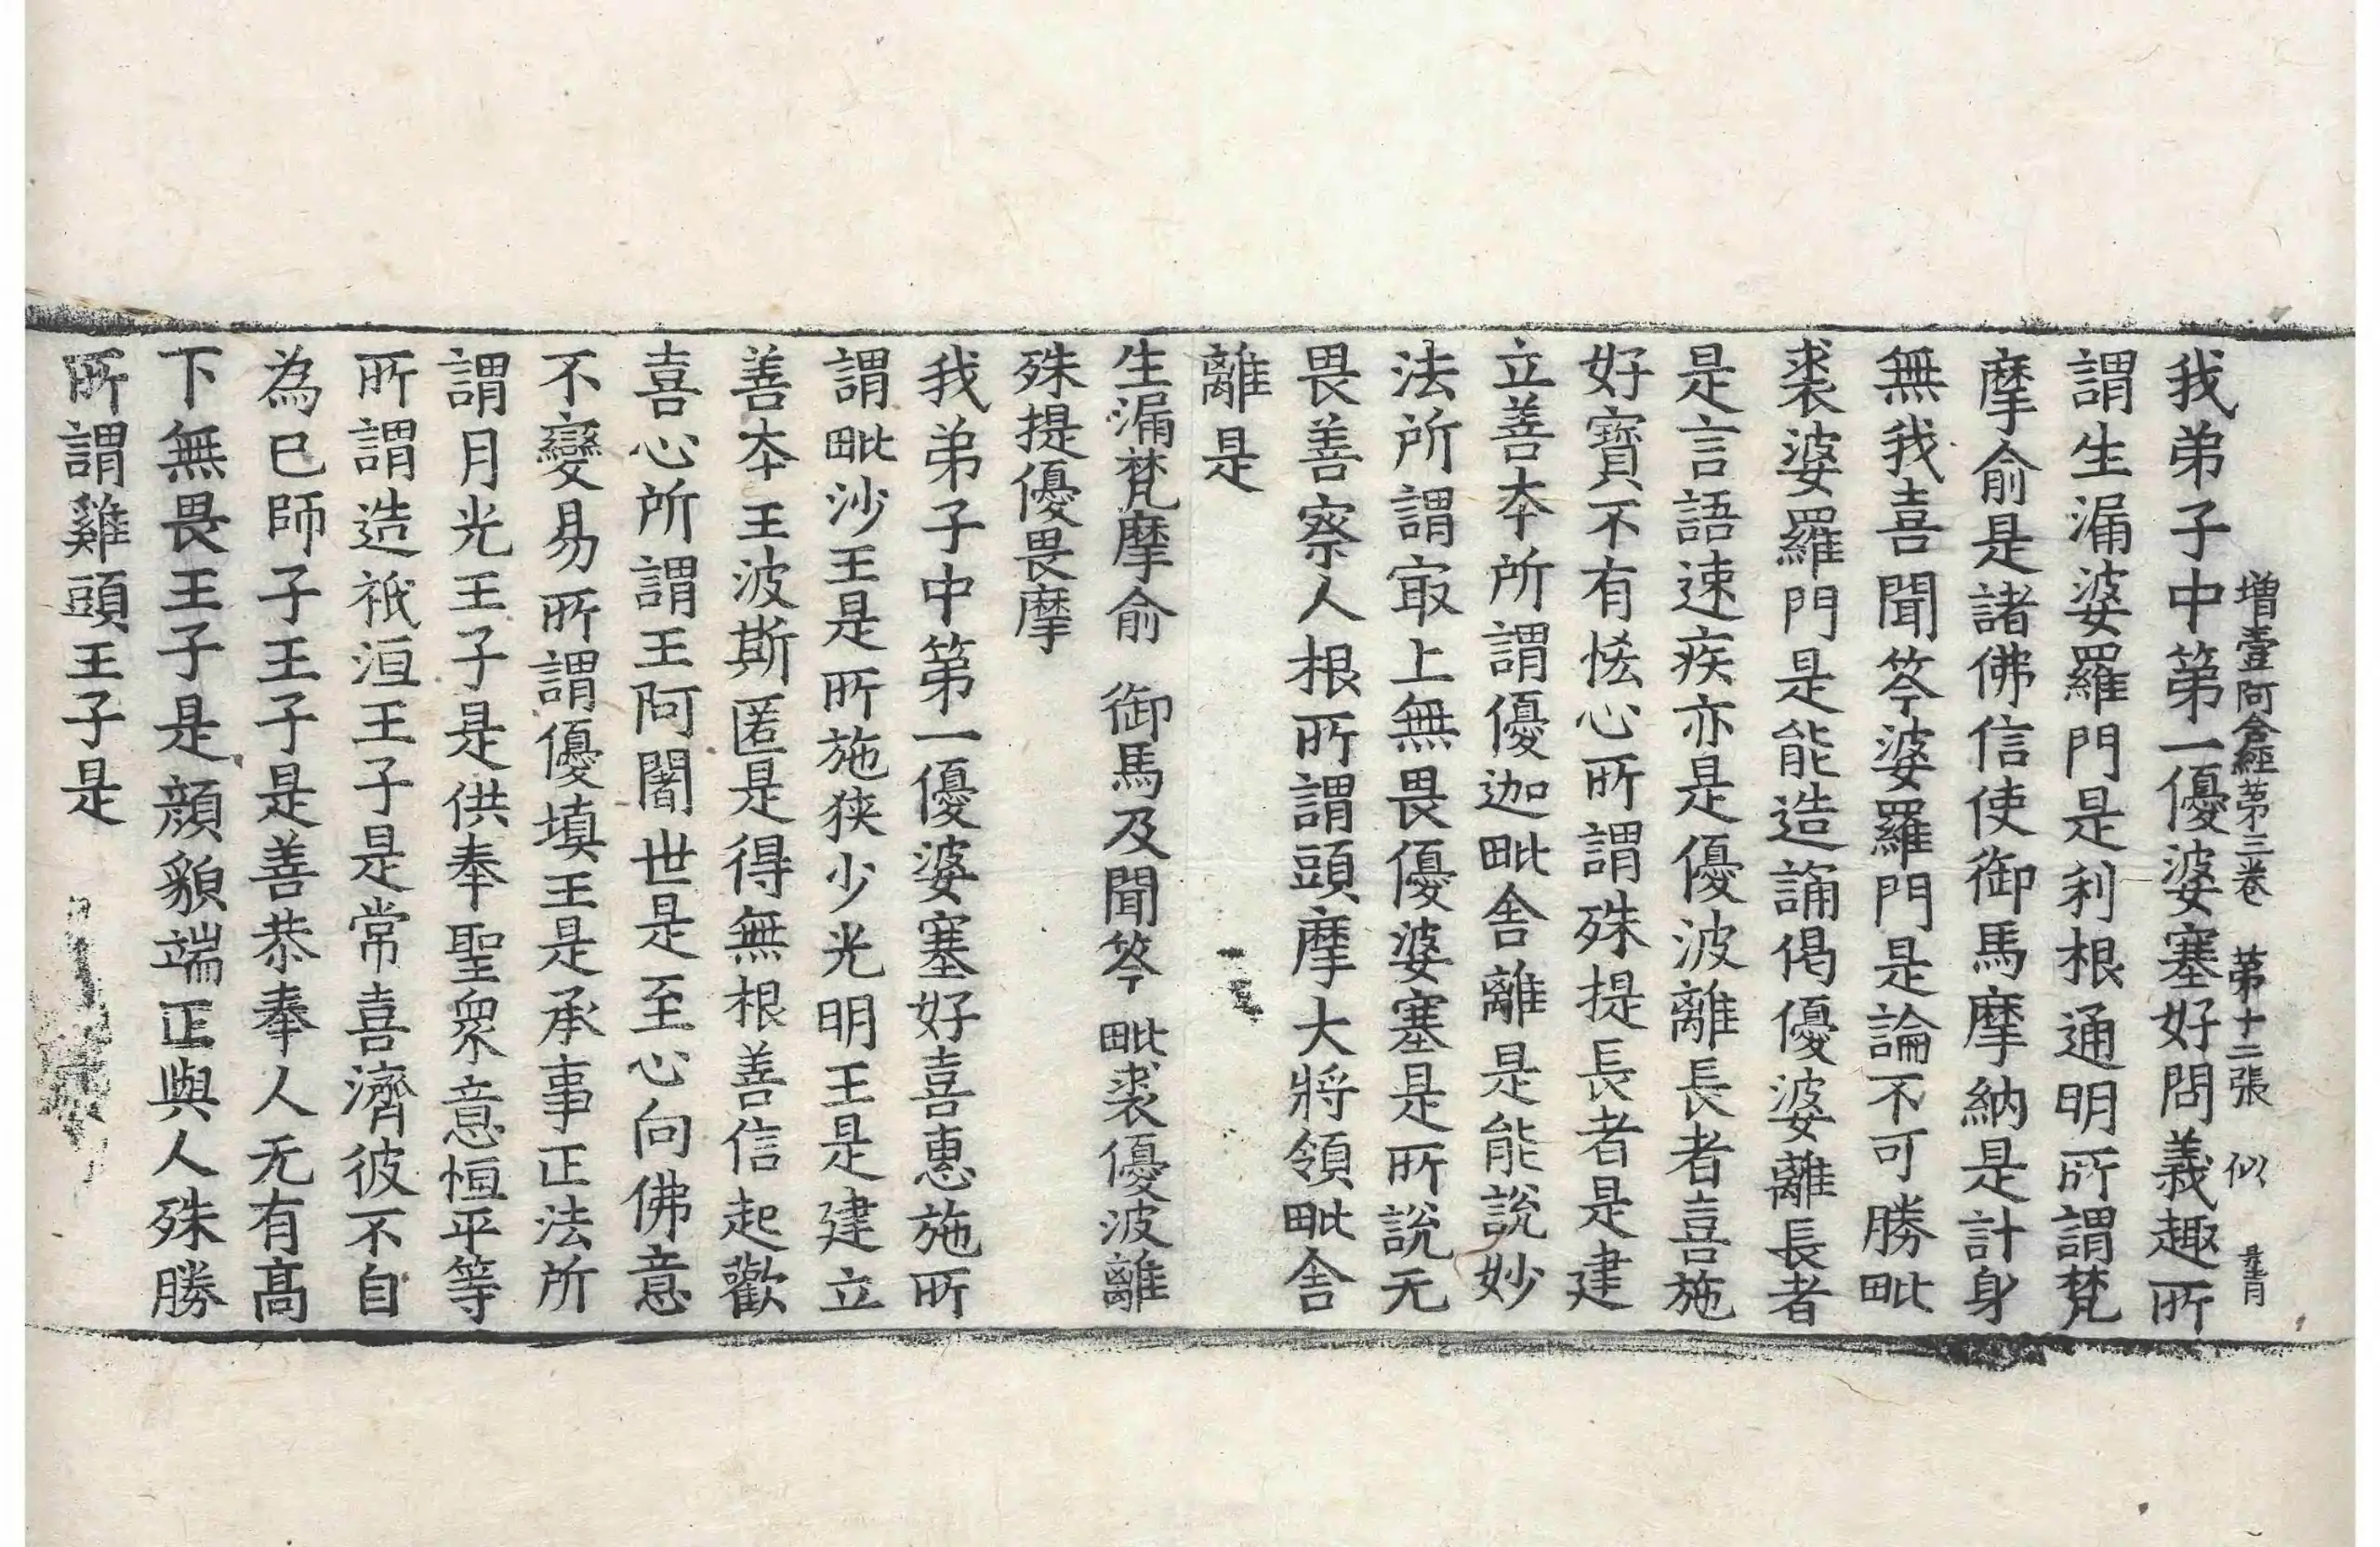 增壹阿含經第三卷 第十二張 似
我弟子中第一優婆塞好問義趣所
謂生漏婆羅門是利根通明所謂梵
摩俞是諸佛信使御馬摩納是計身
無我喜聞笒婆羅門是論不可勝毗
裘婆羅門是能造誦偈優婆離長者
是言語速疾亦是優波離長者喜施
好寶不有恡心所謂殊提長者是建
立善本所謂優迦毗舍離是能說妙
法所謂冣上無畏優婆塞是所說无
畏善察人根所謂頭摩大將領毗舍
離是
生漏梵摩俞 御馬及聞笒 毗裘優波離
殊提優畏摩
我弟子中第一優婆塞好喜惠施所
謂毗沙王是所施狹少光明王是建立
善本王波斯匿是得無根善信起歡
喜心所謂王阿闍世是至心向佛意
不變易所謂優填王是承事正法所
謂月光王子是供奉聖衆意恒平等
所謂造祇洹王子是常喜濟彼不自
為已師子王子是善恭奉人无有高
下無畏王子是顔貌端正與人殊勝
所謂雞頭王子是